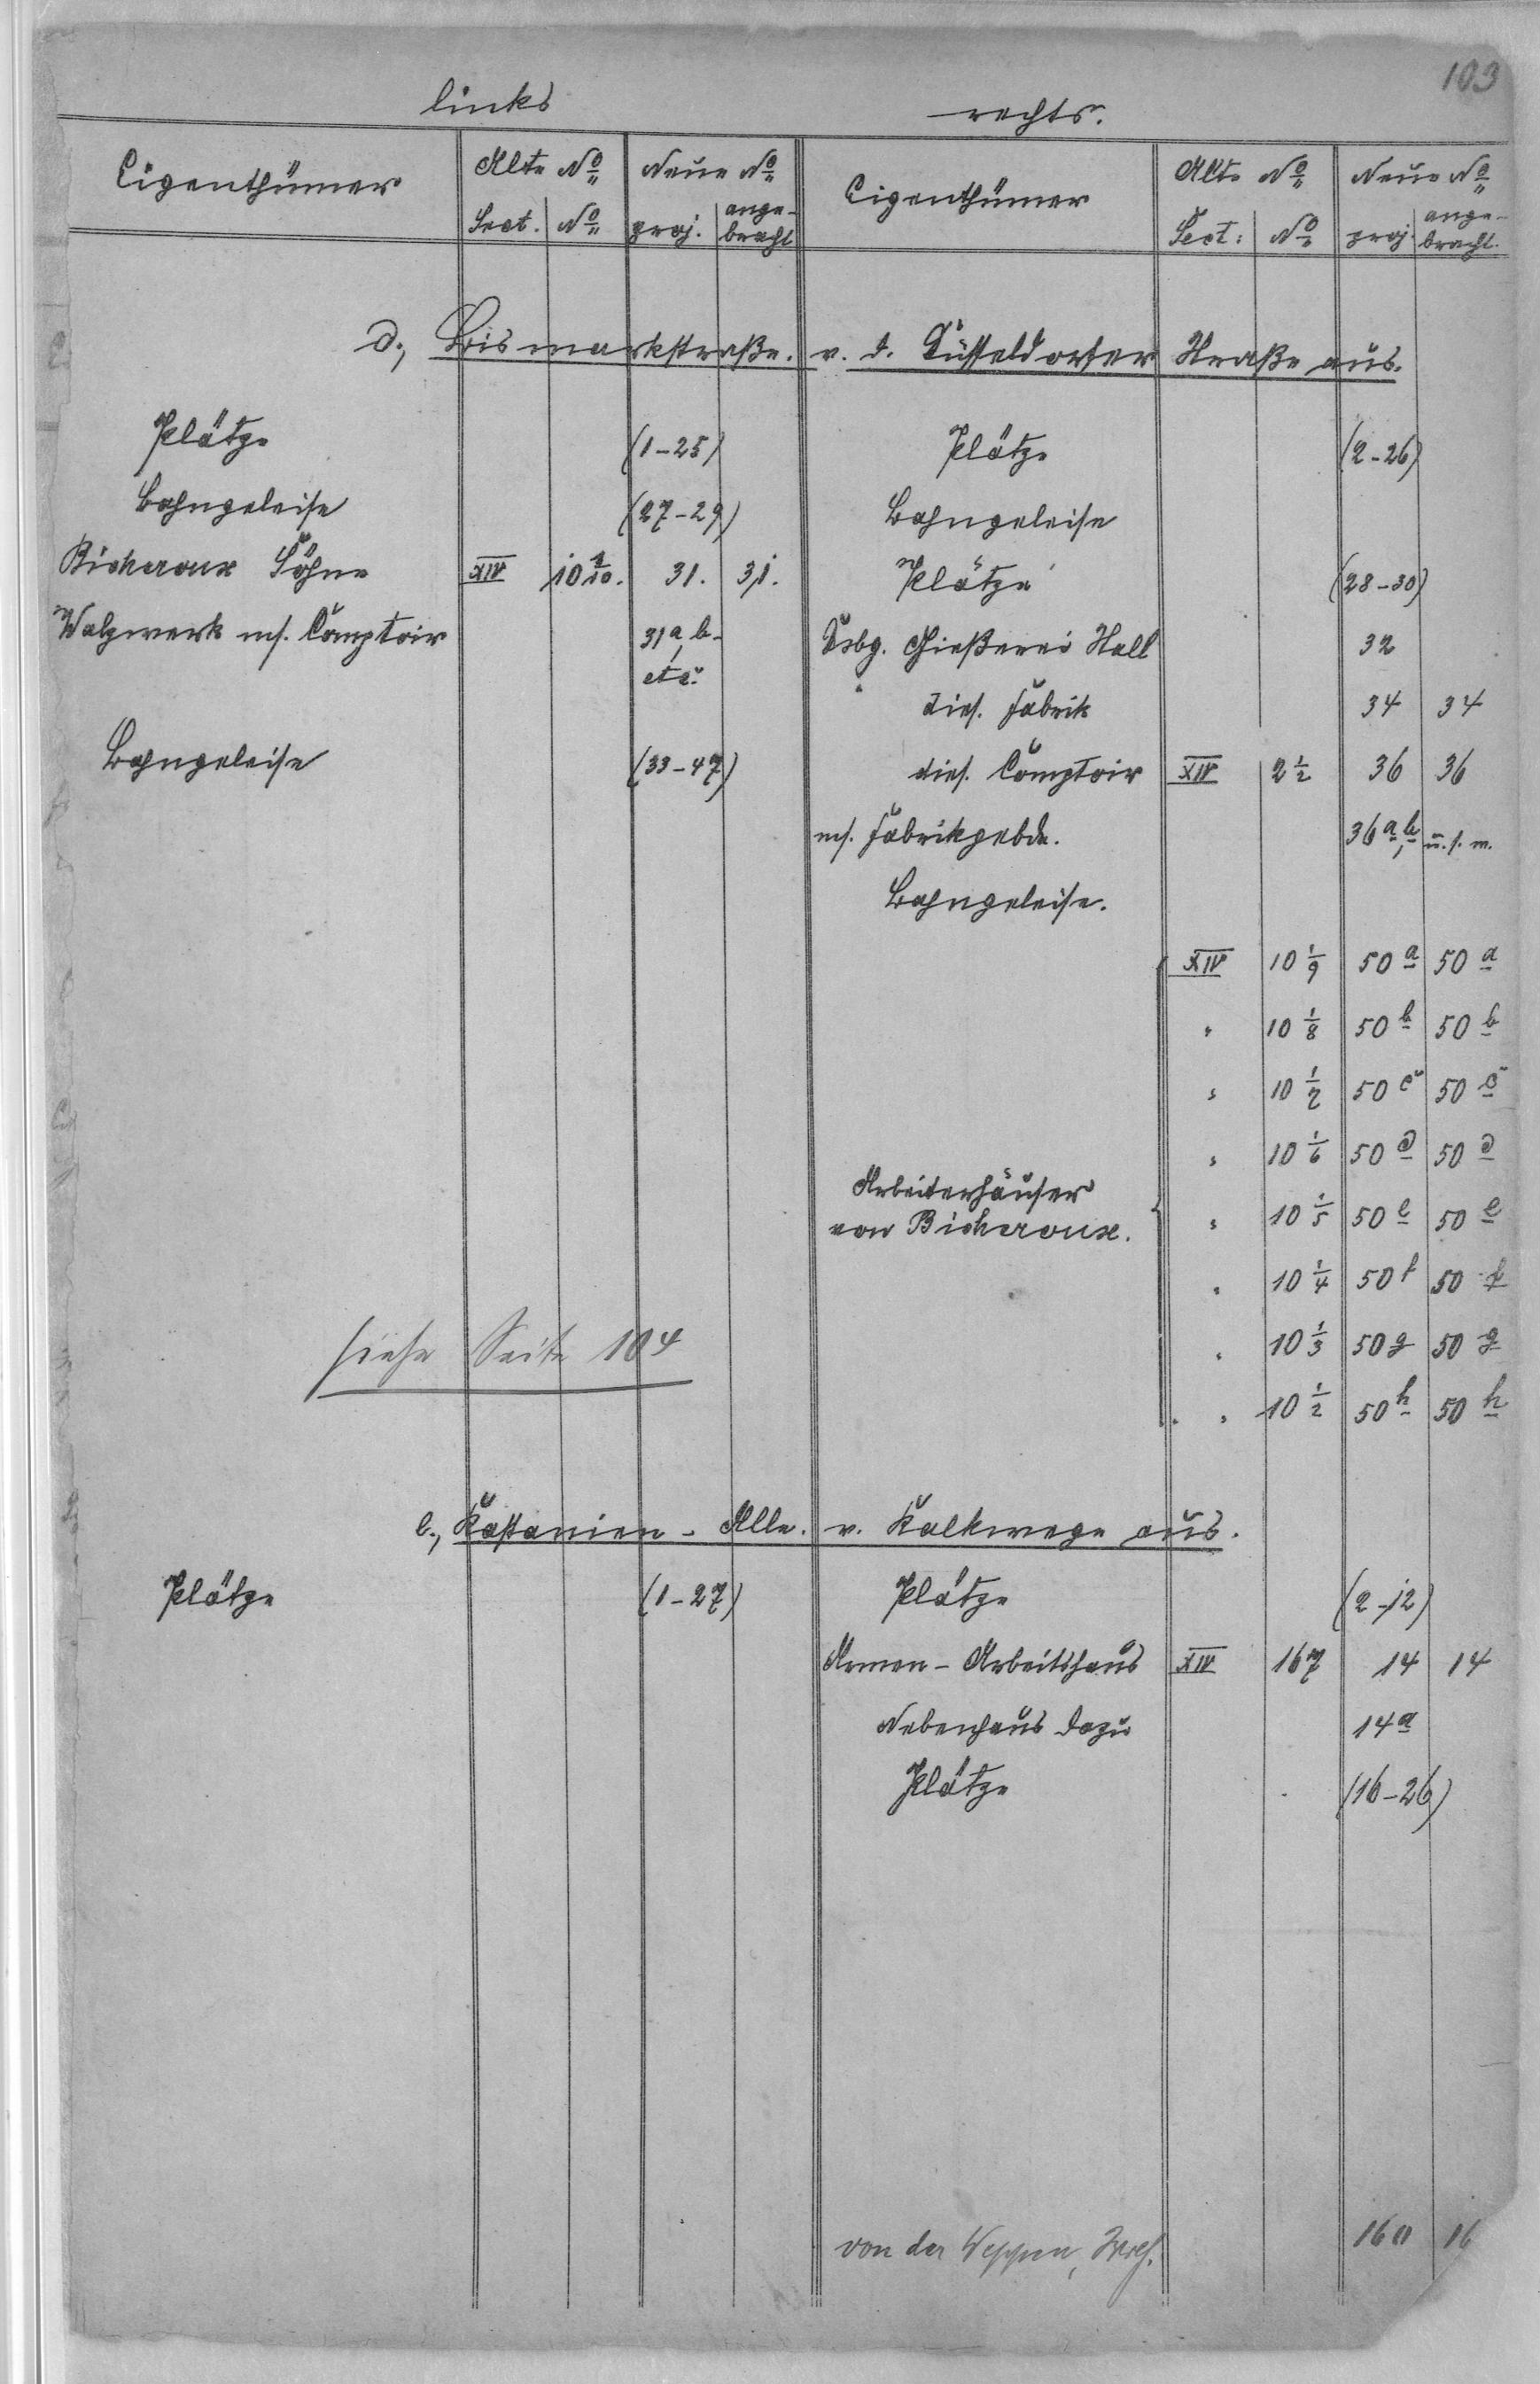 103
links rechts.
Eigenthümer Alte No Neue No Eigenthümer Alte No Neue No
Sect. No proj. ange-bracht Sect: No proj. ange-bracht.
d., Bismarkstraße. v. d. Düsseldorfer Straße aus.
Plätze (1-25) Plätze (2-26)
Bahngeleise (27-29) Bahngeleise
Bicheroux Söhne XIV 10 1/10. 31. 31. Plätze (28-30)
Walzwerk u. Comptoir 31a, b- Dsbg. Gießerei Stall 32
etc. dies. Fabrik 34 34
Bahngeleise (33-47) dies. Comptoir XIV 2 1/2 36 36
u. Fabrikgebde. 36 a, b u. s. w.
Bahngeleise.
XIV 10 1/9 50 a 50 a
" 10 1/8 50 b 50 b
" 10 1/7 50 c 50 c
" 10 1/6 50 d 50 d
Arbeiterhäuser
von Bicheroux. " 10 1/5 50 e 50 e
" 10 1/4 50 f 50 f
siehe Seite 104 " 10 1/3 50 g 50 g
" 10 1/2 50 h 50 h
e., Kastanien-Alle. v. Kalkwege aus.
Plätze (1-27) Plätze (2-12)
Armen-Arbeitshaus XIV 167 14 14
Nebenhaus dazu 14a
Plätze (16-26)
von der Weppen, 16a 16